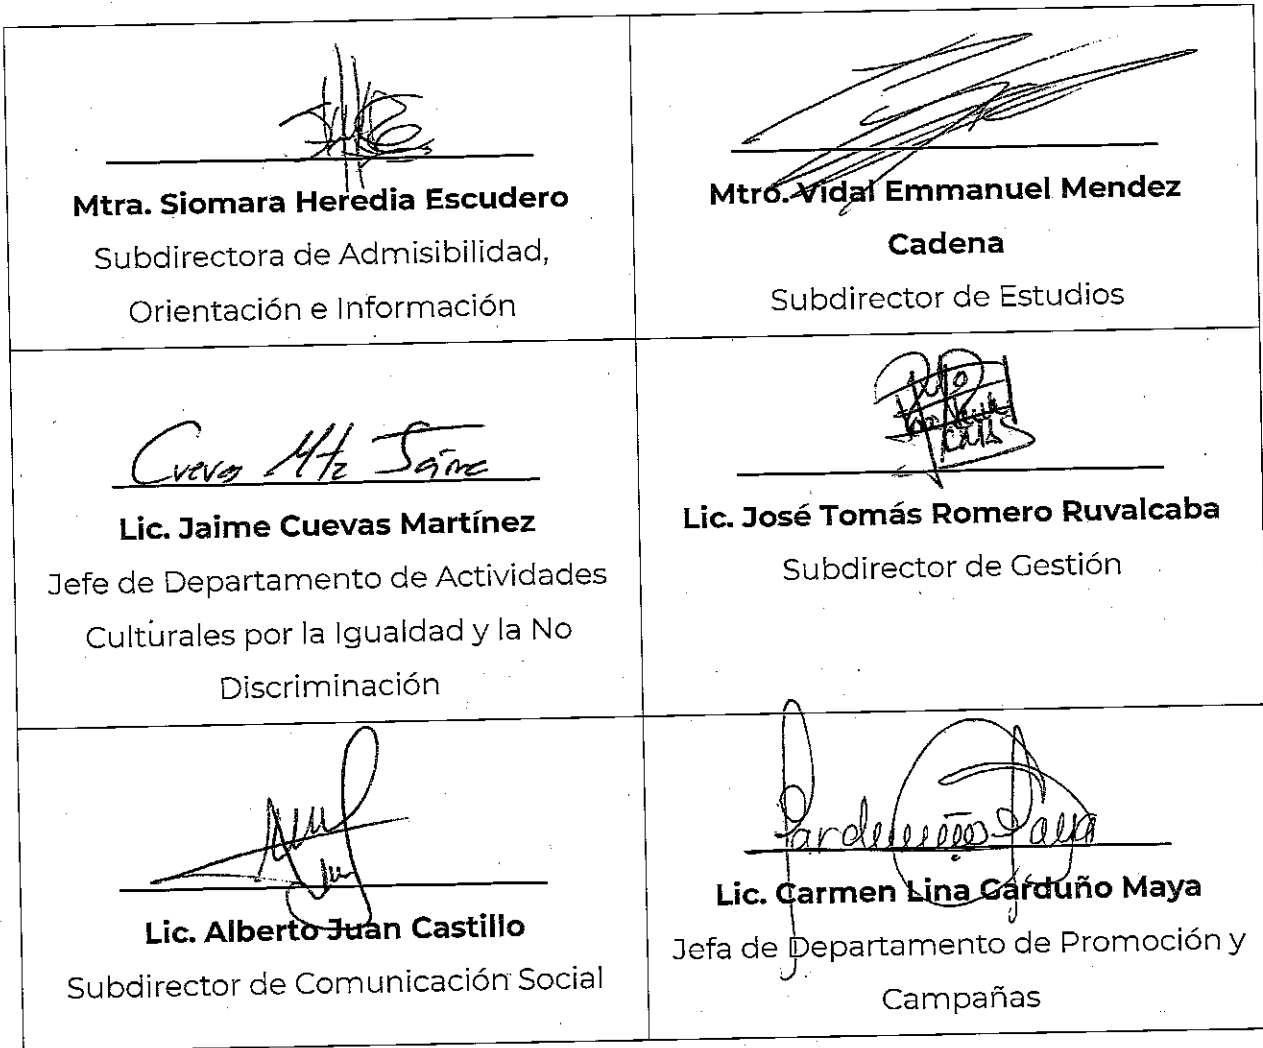 Mtra. Siomara Heredia Escudero
Subdirectora de Admisibilidad,
Orientación e Información
Mtro. Vidal Emmanuel Mendez
Cadena
Subdirector de Estudios
Cuevas Mtz Jaime
Lic. Jaime Cuevas Martínez
Jefe de Departamento de Actividades
Culturales por la Igualdad y la No
Discriminación
Lic. José Tomás Romero Ruvalcaba
Subdirector de Gestión
Lic. Alberto Juan Castillo
Subdirector de Comunicación Social
Lic. Carmen Lina Garduño Maya
Jefa de Departamento de Promoción y
Campañas